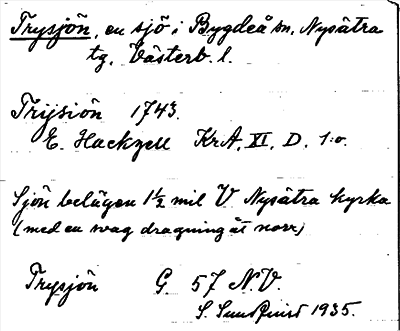 Trysjön, en sjö i Bygdeå sn. Nysätra
tg. Västerb. l.
Trijsiön 1743.
E. Hackzell KrA, XI, D. 1:o.
Sjön belägen 1½ mil V Nysätra kyrka
(med en svag dragning åt norr)
Trysjön G. 57 N.V.
S. Sundquist 1935.